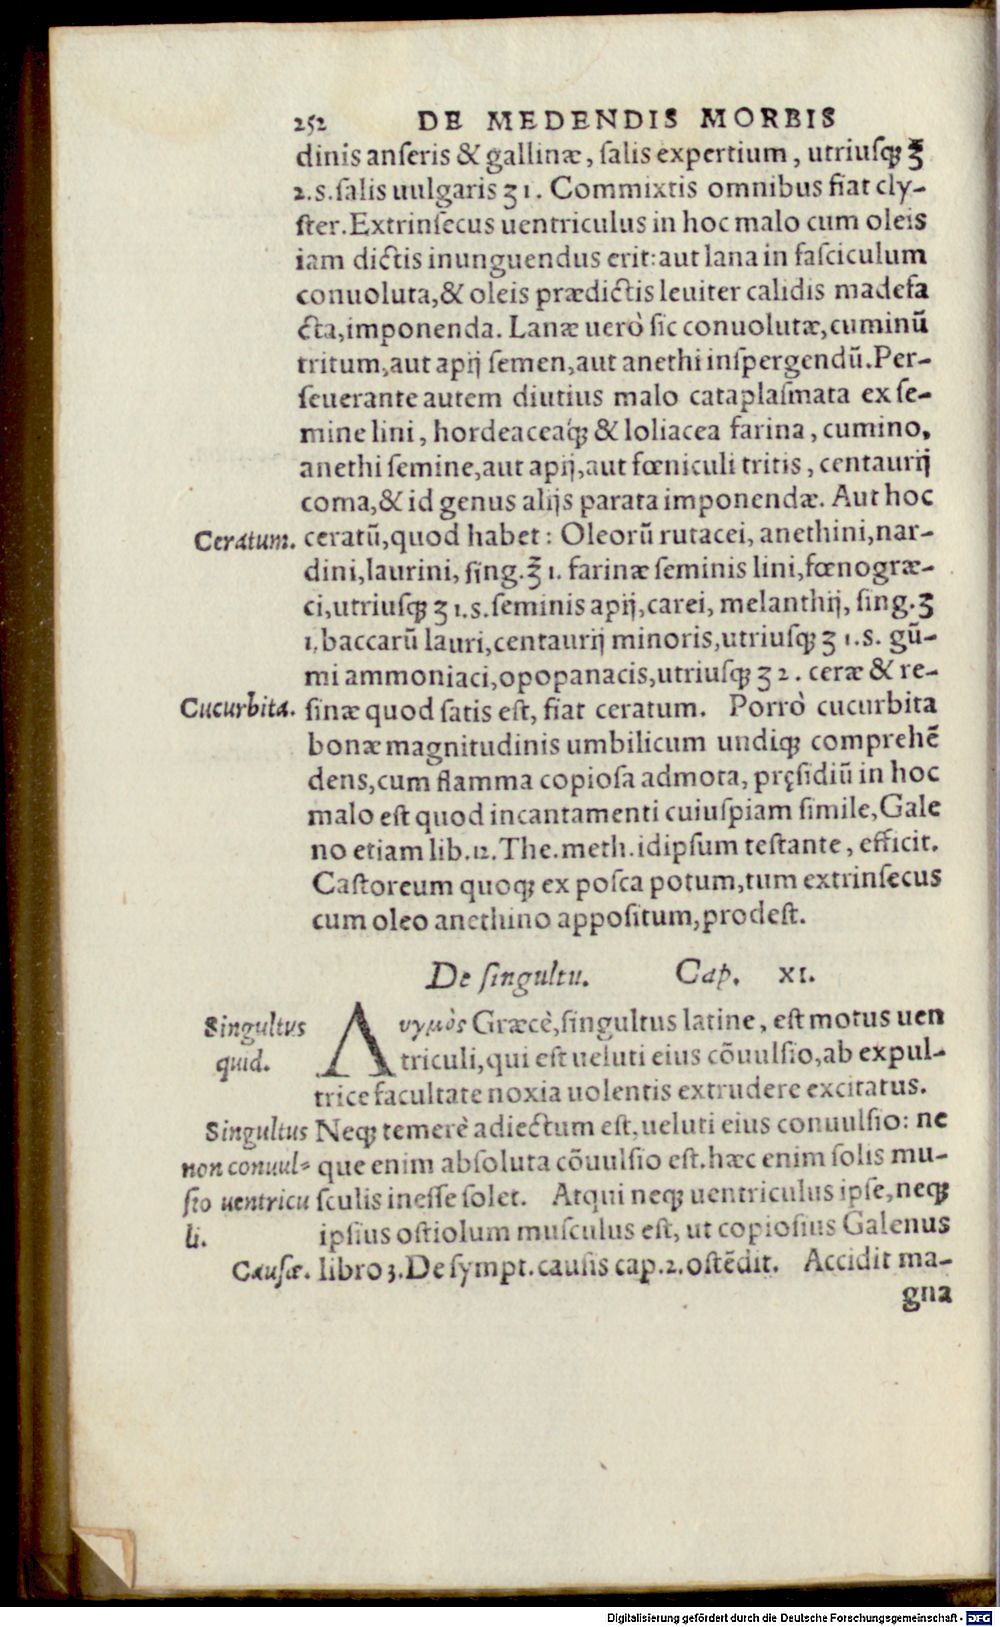 252 DE MEDENDIS MORBIS
dinis anſeris & gallinæ, ſalis expertium, utriuſq; ℥
2.s.ſalis uulgaris ʒ 1. Commixtis omnibus fiat cly-
ſter. Extrinſecus uentriculus in hoc malo cum oleis
iam dictis inunguendus erit: aut lana in faſciculum
conuoluta, & oleis prædictis leuiter calidis madefa
cta, imponenda. Lanæ uerò ſic conuolutæ, cuminũ
tritum, aut apij ſemen, aut anethi inſpergendũ. Per-
ſeuerante autem diutius malo cataplaſmata ex ſe-
mine lini, hordeaceaq́; & loliacea farina, cumino,
anethi ſemine, aut apij, aut fœniculi tritis, centaurij
coma, & id genus alijs parata imponendæ. Aut hoc
Ceratum. ceratũ, quod habet: Oleorũ rutacei, anethini, nar-
dini, laurini, ſing. ℥ 1. farinæ ſeminis lini, fœnogræ-
ci, utriuſq; ʒ 1.s. ſeminis apij, carei, melanthij, ſing. ʒ
1. baccarũ lauri, centaurij minoris, utriuſq; ʒ 1.s. gũ-
mi ammoniaci, opopanacis, utriuſq; ʒ 2. ceræ & re-
Cucurbita. ſinæ quod ſatis eſt, fiat ceratum. Porrò cucurbita
bonæ magnitudinis umbilicum undiq; comprehẽ
dens, cum flamma copioſa admota, pręſidiũ in hoc
malo eſt quod incantamenti cuiuſpiam ſimile, Gale
no etiam lib.12. The.meth. idipſum teſtante, efficit.
Caſtoreum quoq; ex poſca potum, tum extrinſecus
cum oleo anethino appoſitum, prodeſt.
De ſingultu. Cap. XI.
Singultus quid. Λυγμὸς Græcè, ſingultus latine, eſt motus uen
triculi, qui eſt ueluti eius cõuulſio, ab expul-
trice facultate noxia uolentis extrudere excitatus.
Singultus Neq; temerè adiectum eſt, ueluti eius conuulſio: ne
non conuul= que enim abſoluta cõuulſio eſt. hæc enim ſolis mu-
ſio uentricu ſculis ineſſe ſolet. Atqui neq; uentriculus ipſe, neq;
li. ipſius oſtiolum muſculus eſt, ut copioſius Galenus
Cauſæ. libro 3. De ſympt. cauſis cap.2. oſtẽdit. Accidit ma-
gna
Digitalisierung gefördert durch die Deutsche Forschungsgemeinschaft - DFG